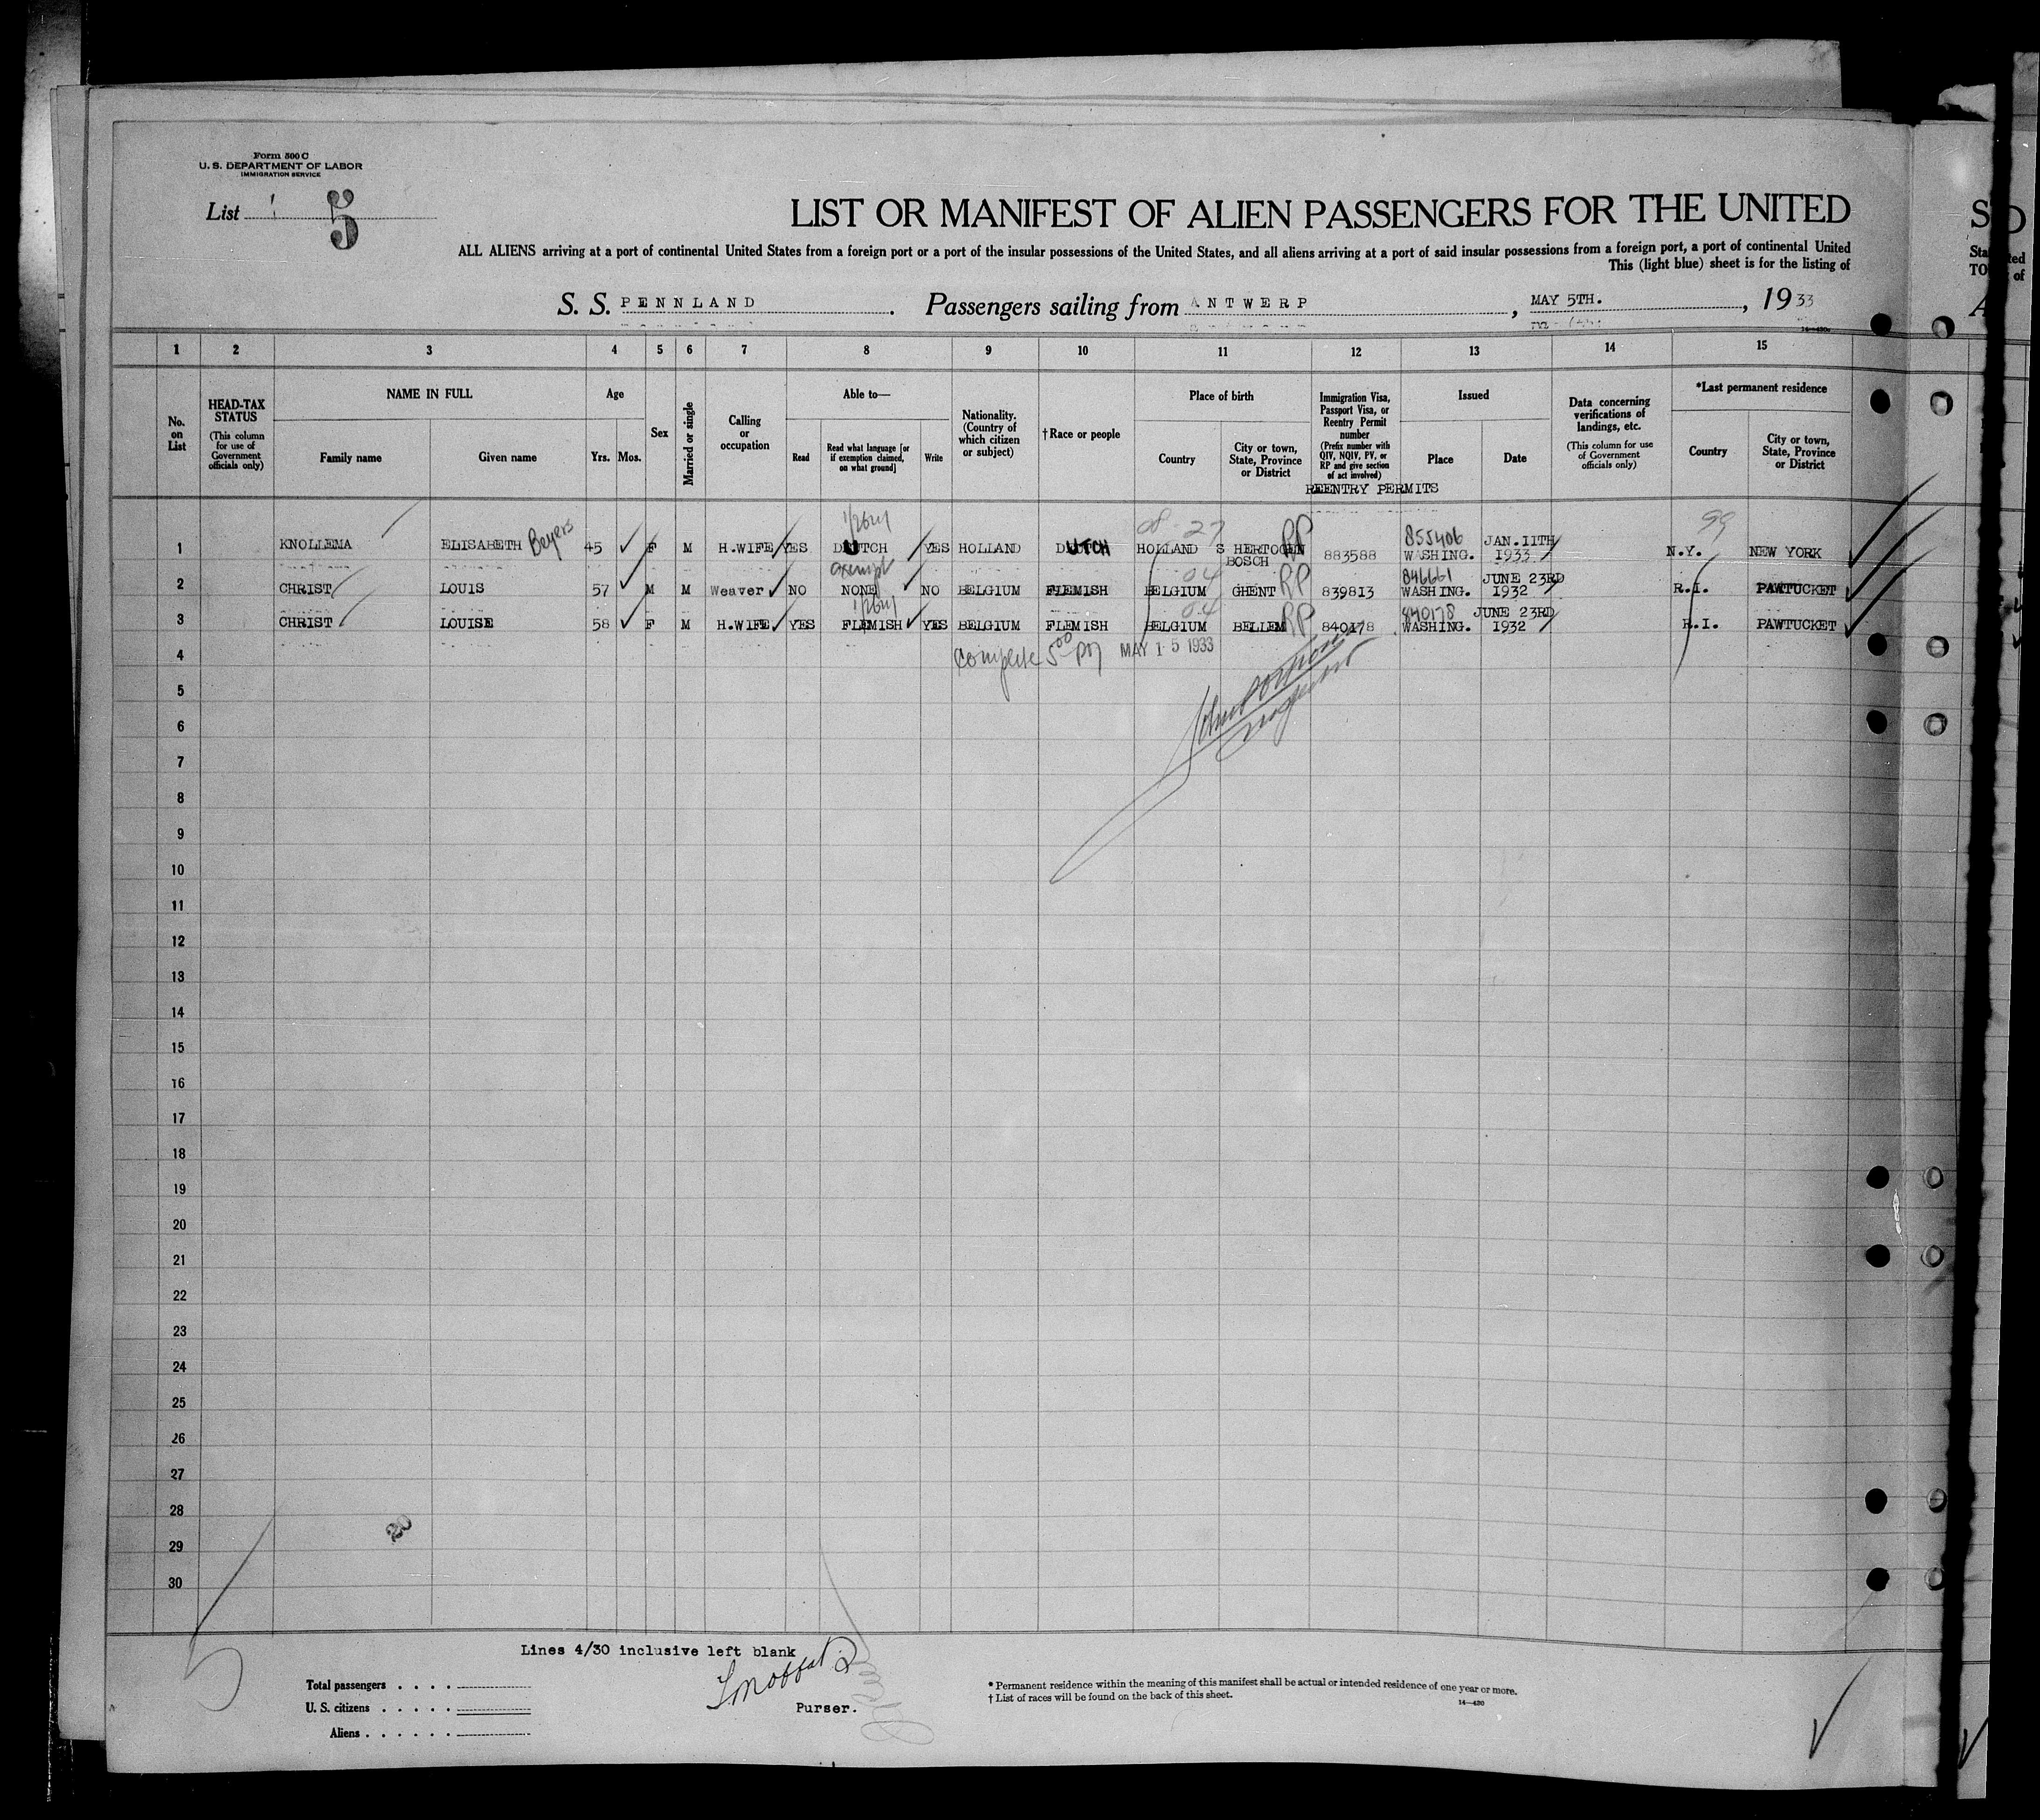 Form 500 C
U. S. DEPARTMENT OF LABOR
IMMIGRATION SERVICE
List 5
LIST OR MANIFEST OF ALIEN PASSENGERS FOR THE UNITED
ALL ALIENS arriving at a port of continental United States from a foreign port or a port of the insular possessions of the United States, and all aliens arriving at a port of said insular possessions from a foreign port, a port of continental United
This (light blue) sheet is for the listing of
S. S. PENNLAND. Passengers sailing from ANTWERP, MAY 5TH., 1933
1 2 3 4 5 6 7 8 9 10 11 12 13 14 15
No. on List
HEAD-TAX STATUS (This column for use of Government officials only)
NAME IN FULL
Family name Given name
Age
Yrs. Mos.
Sex
Married or single
Calling or occupation
Able to—
Read
Read what language [or if exemption claimed, on what ground]
Write
Nationality. (Country of which citizen or subject)
†Race or people
Place of birth
Country
City or town, State, Province or District
Immigration Visa, Passport Visa, or Reentry Permit number (Prefix number with QIV, NQIV, PV, or RP and give section of act involved)
REENTRY PERMITS
Issued
Place Date
Data concerning verifications of landings, etc. (This column for use of Government officials only)
*Last permanent residence
Country
City or town, State, Province or District
08-27 99
1 KNOLLEMA ELISABETH Beyers 45 F M H.WIFE YES DUTCH YES HOLLAND DUTCH HOLLAND S HERTOGEN BOSCH RP 883588 855406 WASHING. JAN.11TH 1933 N.Y. NEW YORK
exempt 04
2 CHRIST LOUIS 57 M M Weaver NO NONE NO BELGIUM FLEMISH BELGIUM GHENT RP 839813 846661 WASHING. JUNE 23RD 1932 R.I. PAWTUCKET
04
3 CHRIST LOUISE 58 F M H.WIFE YES FLEMISH YES BELGIUM FLEMISH BELGIUM BELLEM RP 840178 840178 WASHING. JUNE 23RD 1932 R.I. PAWTUCKET
4 Complete 5 00 pm MAY 15 1933
5
6
7
8
9
10
11
12
13
14
15
16
17
18
19
20
21
22
23
24
25
26
27
28
20
29
30
Lines 4/30 inclusive left blank
Total passengers
U. S. citizens
Aliens
Purser.
* Permanent residence within the meaning of this manifest shall be actual or intended residence of one year or more.
† List of races will be found on the back of this sheet.
14—430